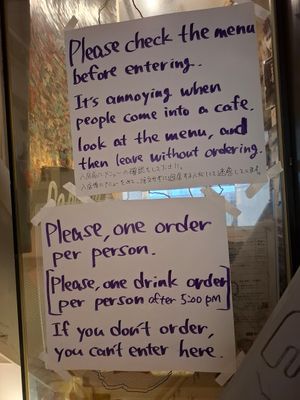 Please check the menu
before entering.
It's annoying when
people come into a cafe.
look at the menu, and
then leave without ordering.
Please, one order
per person.
[Please, one drink order
per person after 5:00 pm]
If you don't order,
you can't enter here.